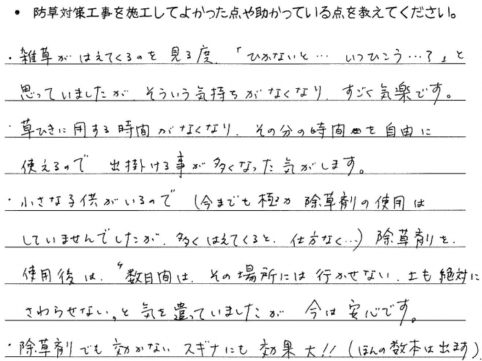 ・防草対策工事を施工してよかった点や助かっている点を教えてください。
・雑草がはえてくるのを見る度、「ひかないと… いつひこう…?」と
思っていましたが、そういう気持ちがなくなり、すごく気楽です。
・草ひきに用する時間がなくなり、その分の時間を自由に
使えるので 出掛ける事が多くなった気がします。
・小さな子供がいるので (今までも極力 除草剤の使用は
していませんでしたが、多くはえてくると、仕方なく…) 除草剤を、
使用後は、“数日間は、その場所には行かせない、土も絶対に
さわらせない„と 気を遣っていましたが 今は 安心です。
・除草剤でも効かない スギナにも 効果大!! (ほんの数本は出ます)